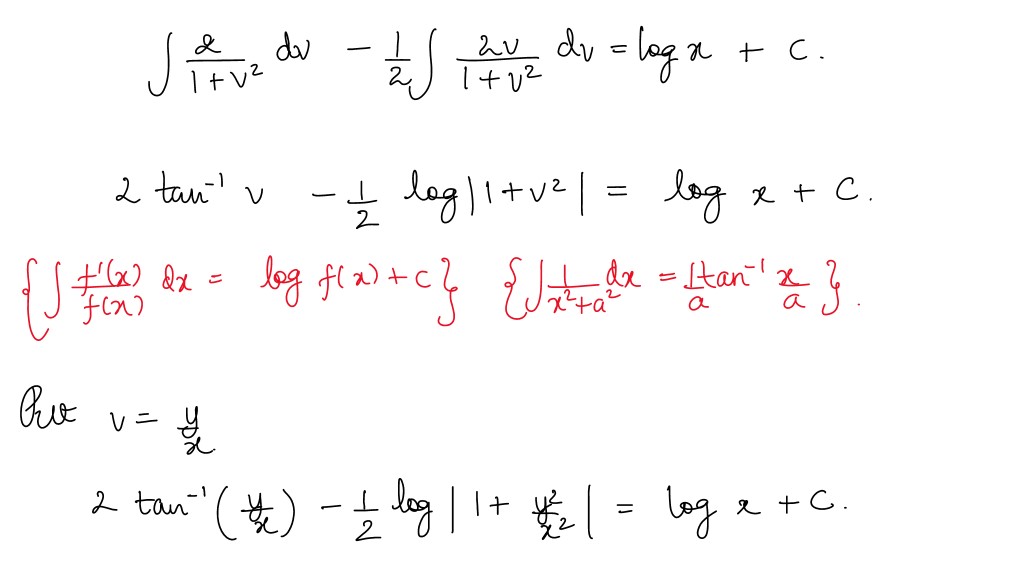 ∫ 2/(1+v²) dv − 1/2 ∫ 2v/(1+v²) dv = log x + C.
2 tan⁻¹ v − 1/2 log|1+v²| = log x + C.
{∫ f'(x)/f(x) dx = log f(x) + C} {∫ 1/(x²+a²) dx = 1/a tan⁻¹ x/a}.
Put v = y/x
2 tan⁻¹(y/x) − 1/2 log|1 + y²/x²| = log x + C.